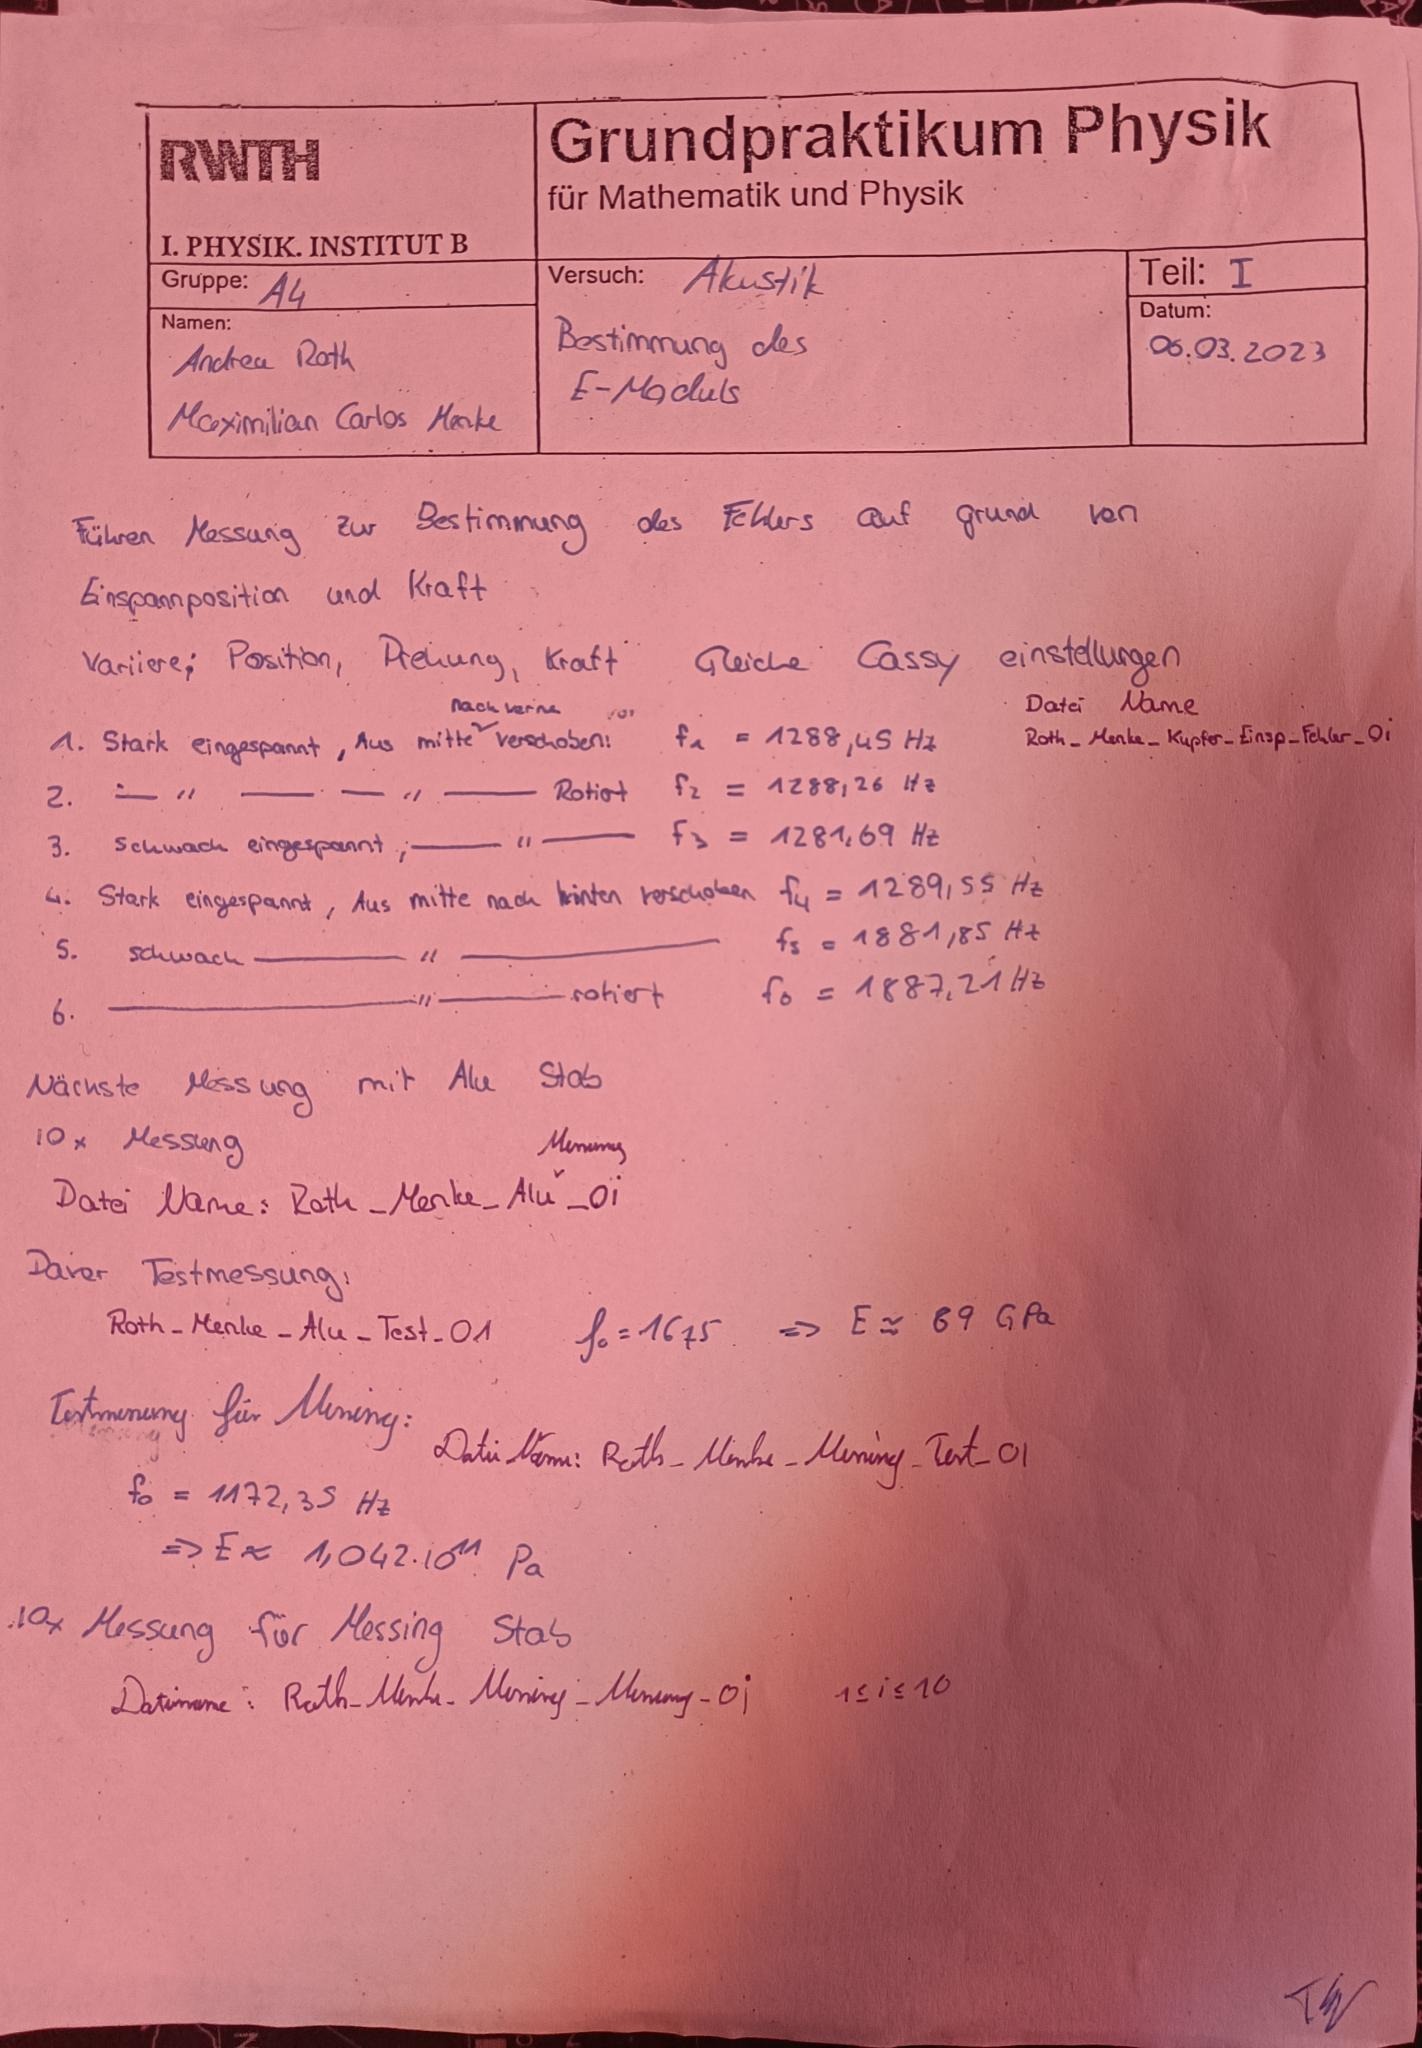 RWTH
I. PHYSIK. INSTITUT B
Grundpraktikum Physik
für Mathematik und Physik
Gruppe: A4
Namen:
Andrea Roth
Maximilian Carlos Menke
Versuch: Akustik
Bestimmung des
E-Moduls
Teil: I
Datum:
06.03.2023
Führen Messung zur Bestimmung des Fehlers auf grund von
Einspannposition und Kraft
Variiere; Position, Drehung, Kraft Gleiche Cassy einstellungen
Datei Name
Roth_Menke_Kupfer_Einsp_Fehler_0i
nach vorne
1. Stark eingespannt, Aus mitte verschoben: f1 = 1288,45 Hz
2. — " — — " — Rotiert f2 = 1288,26 Hz
3. schwach eingespannt, — " — f3 = 1281,69 Hz
4. Stark eingespannt, Aus mitte nach hinten verschoben f4 = 1289,55 Hz
5. schwach — " — f5 = 1881,85 Hz
6. — " — rotiert f6 = 1887,21 Hz
Nächste Messung mit Alu Stab
10x Messung
Messung
Datei Name: Roth_Menke_Alu_0i
Davor Testmessung:
Roth_Menke_Alu_Test_01 f0 = 1675 => E ≈ 69 GPa
Testmessung für Messing:
Datei Name: Roth_Menke_Messing_Test_01
f0 = 1172,35 Hz
=> E ≈ 1,042·10^11 Pa
10x Messung für Messing Stab
Dateiname: Roth_Menke_Messing_Messung_0i 1≤i≤10